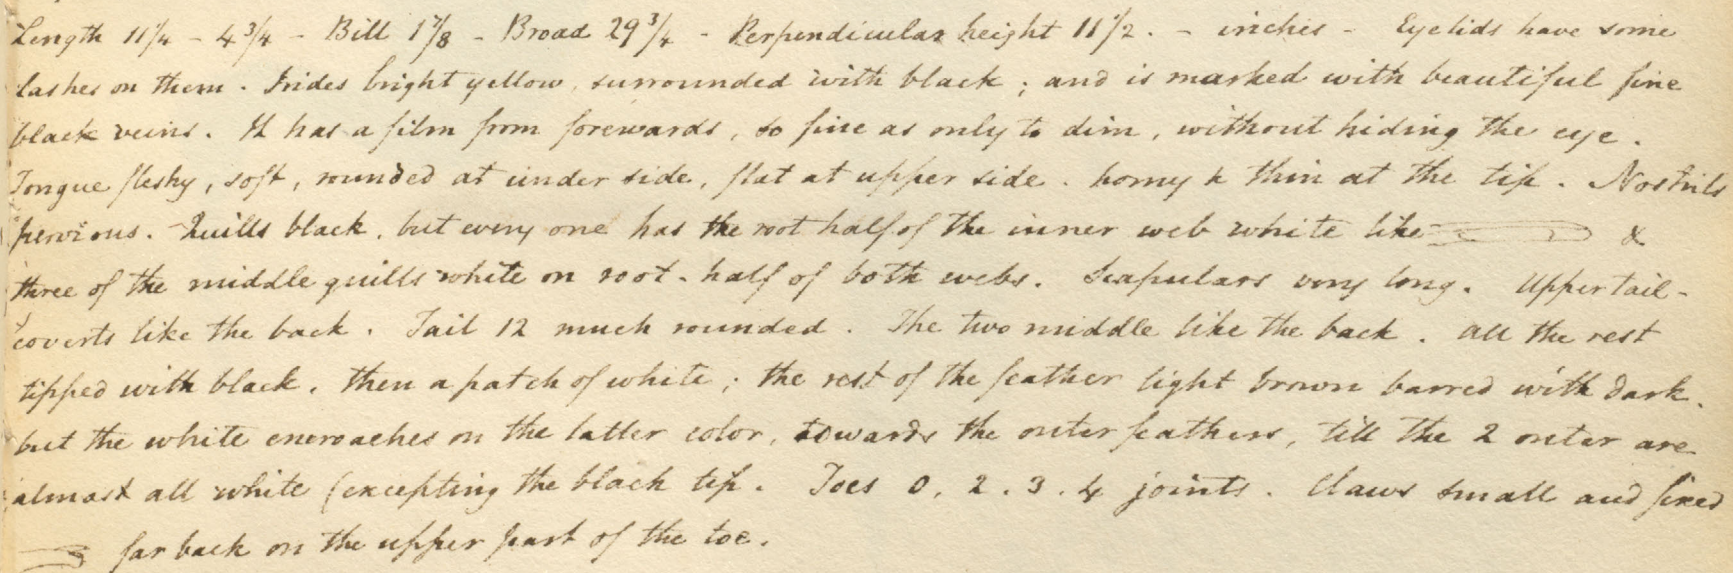 Length 11 1/4 - 4 3/4 - Bill 1 7/8 - Broad 29 3/4 - Perpendicular height 11 1/2. - inches - Eyelids have some
lashes on them. Irides bright yellow, surrounded with black; and is marked with beautiful fine
black veins. It has a film from forewards, so fine as only to dim, without hiding the eye.
Tongue fleshy, soft, rounded at under side, flat at upper side. horny & thin at the tip. Nostrils
pervious. Quills black, but every one has the root half of the inner web white like &
three of the middle quills white on root-half of both webs. Scapulars very long. Upper tail-
coverts like the back. Tail 12 much rounded. The two middle like the back. All the rest
tipped with black, then a patch of white; the rest of the feather light brown barred with dark.
but the white encroaches on the latter color, towards the outer feathers, till the 2 outer are
almost all white (excepting the black tip. Toes 0. 2. 3. 4 joints. Claws small and fixed
far back on the upper part of the toe.